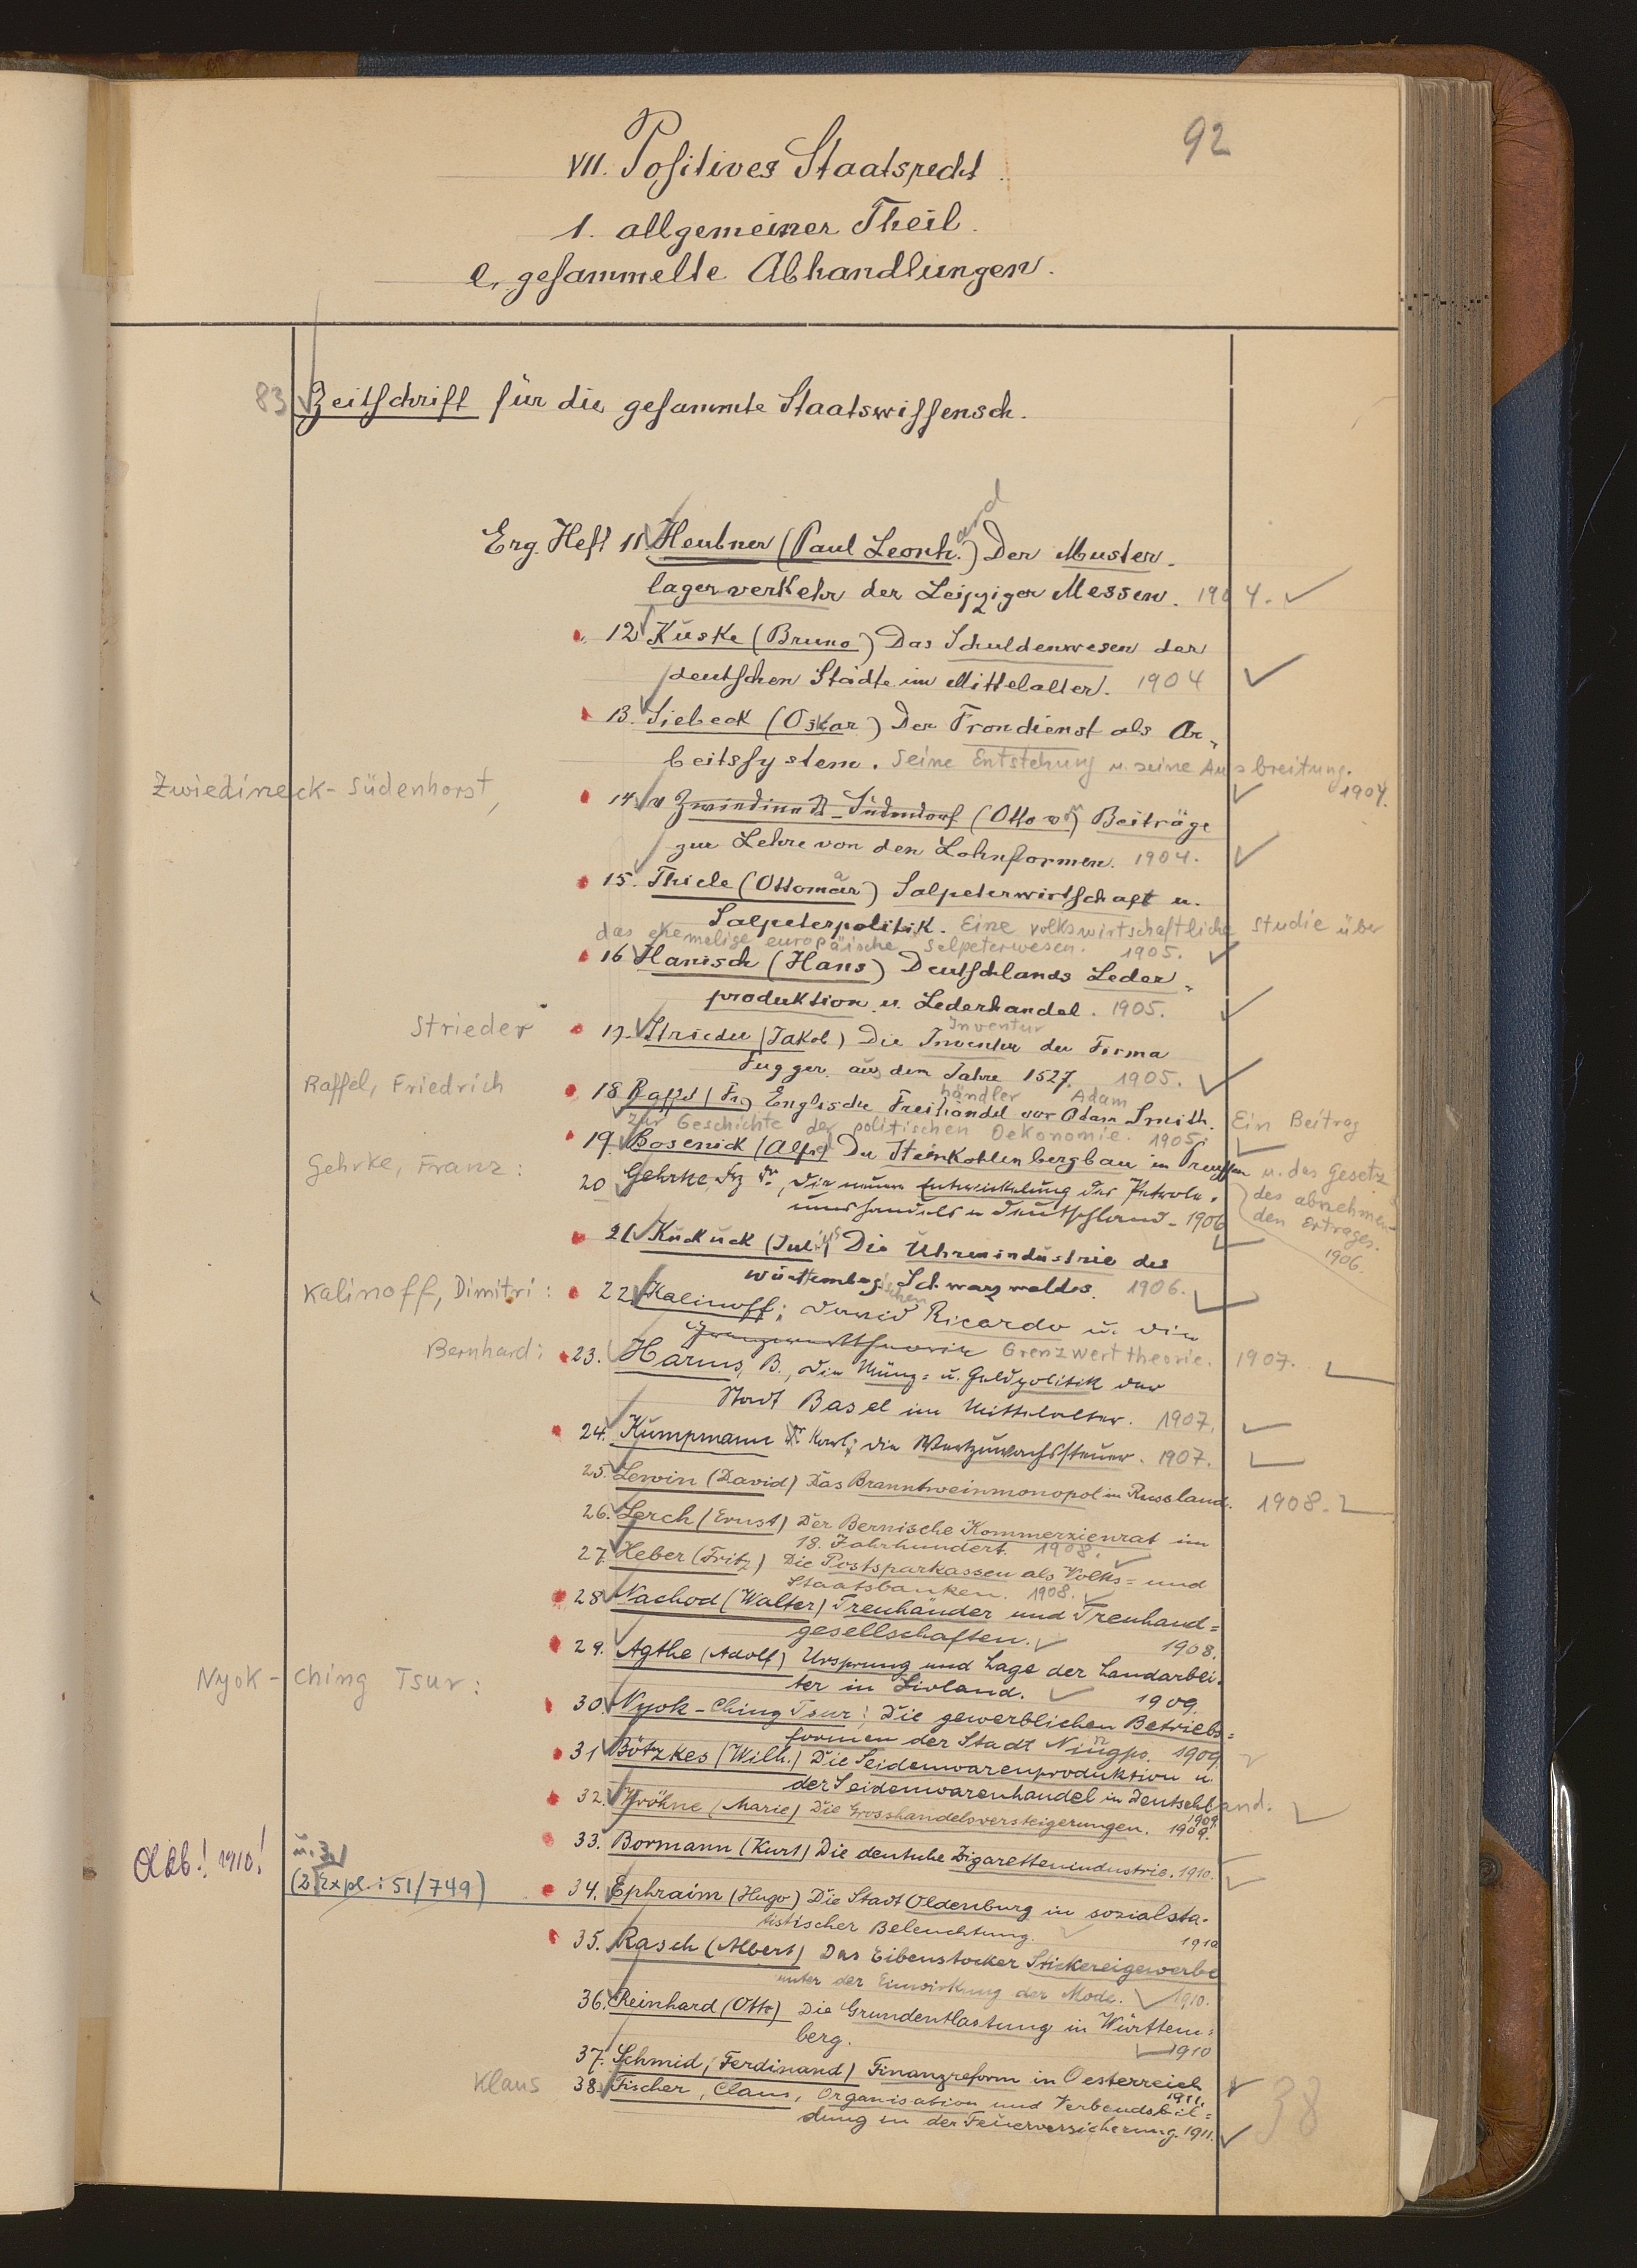 92
VII. Positives Staatsrecht
1. allgemeiner Theil.
e, gesammelte Abhandlungen.
83 Zeitschrift für die gesammte Staatswissensch.
Erg. Heft 11 Heubner (Paul Leonh.ard) Der Muster-
lagerverkehr der Leipziger Messen. 1904.
12 Kuske (Bruno) Das Schuldenwesen der
deutschen Städte im Mittelalter. 1904
13. Siebeck (Oskar) Der Frondienst als Ar-
beitssystem. Seine Entstehung u. seine Ausbreitung.
1904.
Zwiedineck-Südenhorst,
14. v Zwiedineck-Südendorf (Otto von) Beiträge
zur Lehre von den Lohnformen. 1904.
15. Thiele (Ottomar) Salpeterwirtschaft u.
Salpeterpolitik. Eine volkswirtschaftliche Studie über
das ehemalige europäische Salpeterwesen. 1905.
16 Hanisch (Hans) Deutschlands Leder-
produktion u. Lederhandel. 1905.
Strieder
Inventur
17. Strieder (Jakob) Die Inventur der Firma
Fugger aus dem Jahre 1527. 1905.
Raffel, Friedrich
händler Adam
18 Raffel (Fr.) Englische Freihandel vor Adam Smith. Ein Beitrag
zur Geschichte der politischen Oekonomie. 1905.
19. Bosenick (Alfred) Der Steinkohlenbergbau in Preussen u. das Gesetz
des abnehmen-
den Ertrages.
1906.
Gehrke, Franz:
20 Gehrke, Frz Dr., Die neuere Entwickelung des Petrole-
umhandels in Deutschland. 1906
21 Kuckuck (Julius) Die Uhrenindustrie des
württembergischen Schwarzwaldes. 1906.
Kalinoff, Dimitri:
22 Kalinoff; David Ricardo u. die
Grenzwerttheorie Grenzwerttheorie. 1907.
Bernhard:
23. Harms, B., Die Münz- u. Geldpolitik der
Stadt Basel im Mittelalter. 1907.
24. Kumpmann Dr. Karl; die Wertzuwachssteuer. 1907.
25. Lewin (David) Das Branntweinmonopol in Russland. 1908.
26. Lerch (Ernst) Der Bernische Kommerzienrat im
18. Jahrhundert. 1908.
27. Heber (Fritz) Die Postsparkassen als Volks= und
Staatsbanken. 1908.
28 Nachod (Walter) Treuhänder und Treuhand=
gesellschaften. 1908.
29. Agthe (Adolf) Ursprung und Lage der Landarbei-
ter in Livland. 1909.
Nyok-Ching Tsur:
30. Nyok-Ching Tsur: Die gewerblichen Betriebs=
formen der Stadt Ningpo. 1909.
31 Bötzkes (Wilh.) Die Seidenwarenproduktion u.
der Seidenwarenhandel in Deutschland.
1909.
32. Kröhne (Marie) Die Grosshandelsversteigerungen. 1909.
33. Bormann (Kurt) Die deutsche Zigarettenindustrie. 1910.
Oldb.! 1910!
(2 Expl.: 51/749)
34. Ephraim (Hugo) Die Stadt Oldenburg in sozialsta-
tistischer Beleuchtung. 1910
35. Rasch (Albert) Das Eibenstocker Stickereigewerbe
unter der Einwirkung der Mode. 1910.
36. Reinhard (Otto) Die Grundentlastung in Württem=
berg. 1910
37. Schmid, (Ferdinand) Finanzreform in Oesterreich
1911.
Klaus
38. Fischer, Claus, Organisation und Verbandsbil=
dung in der Feuerversicherung. 1911.
38